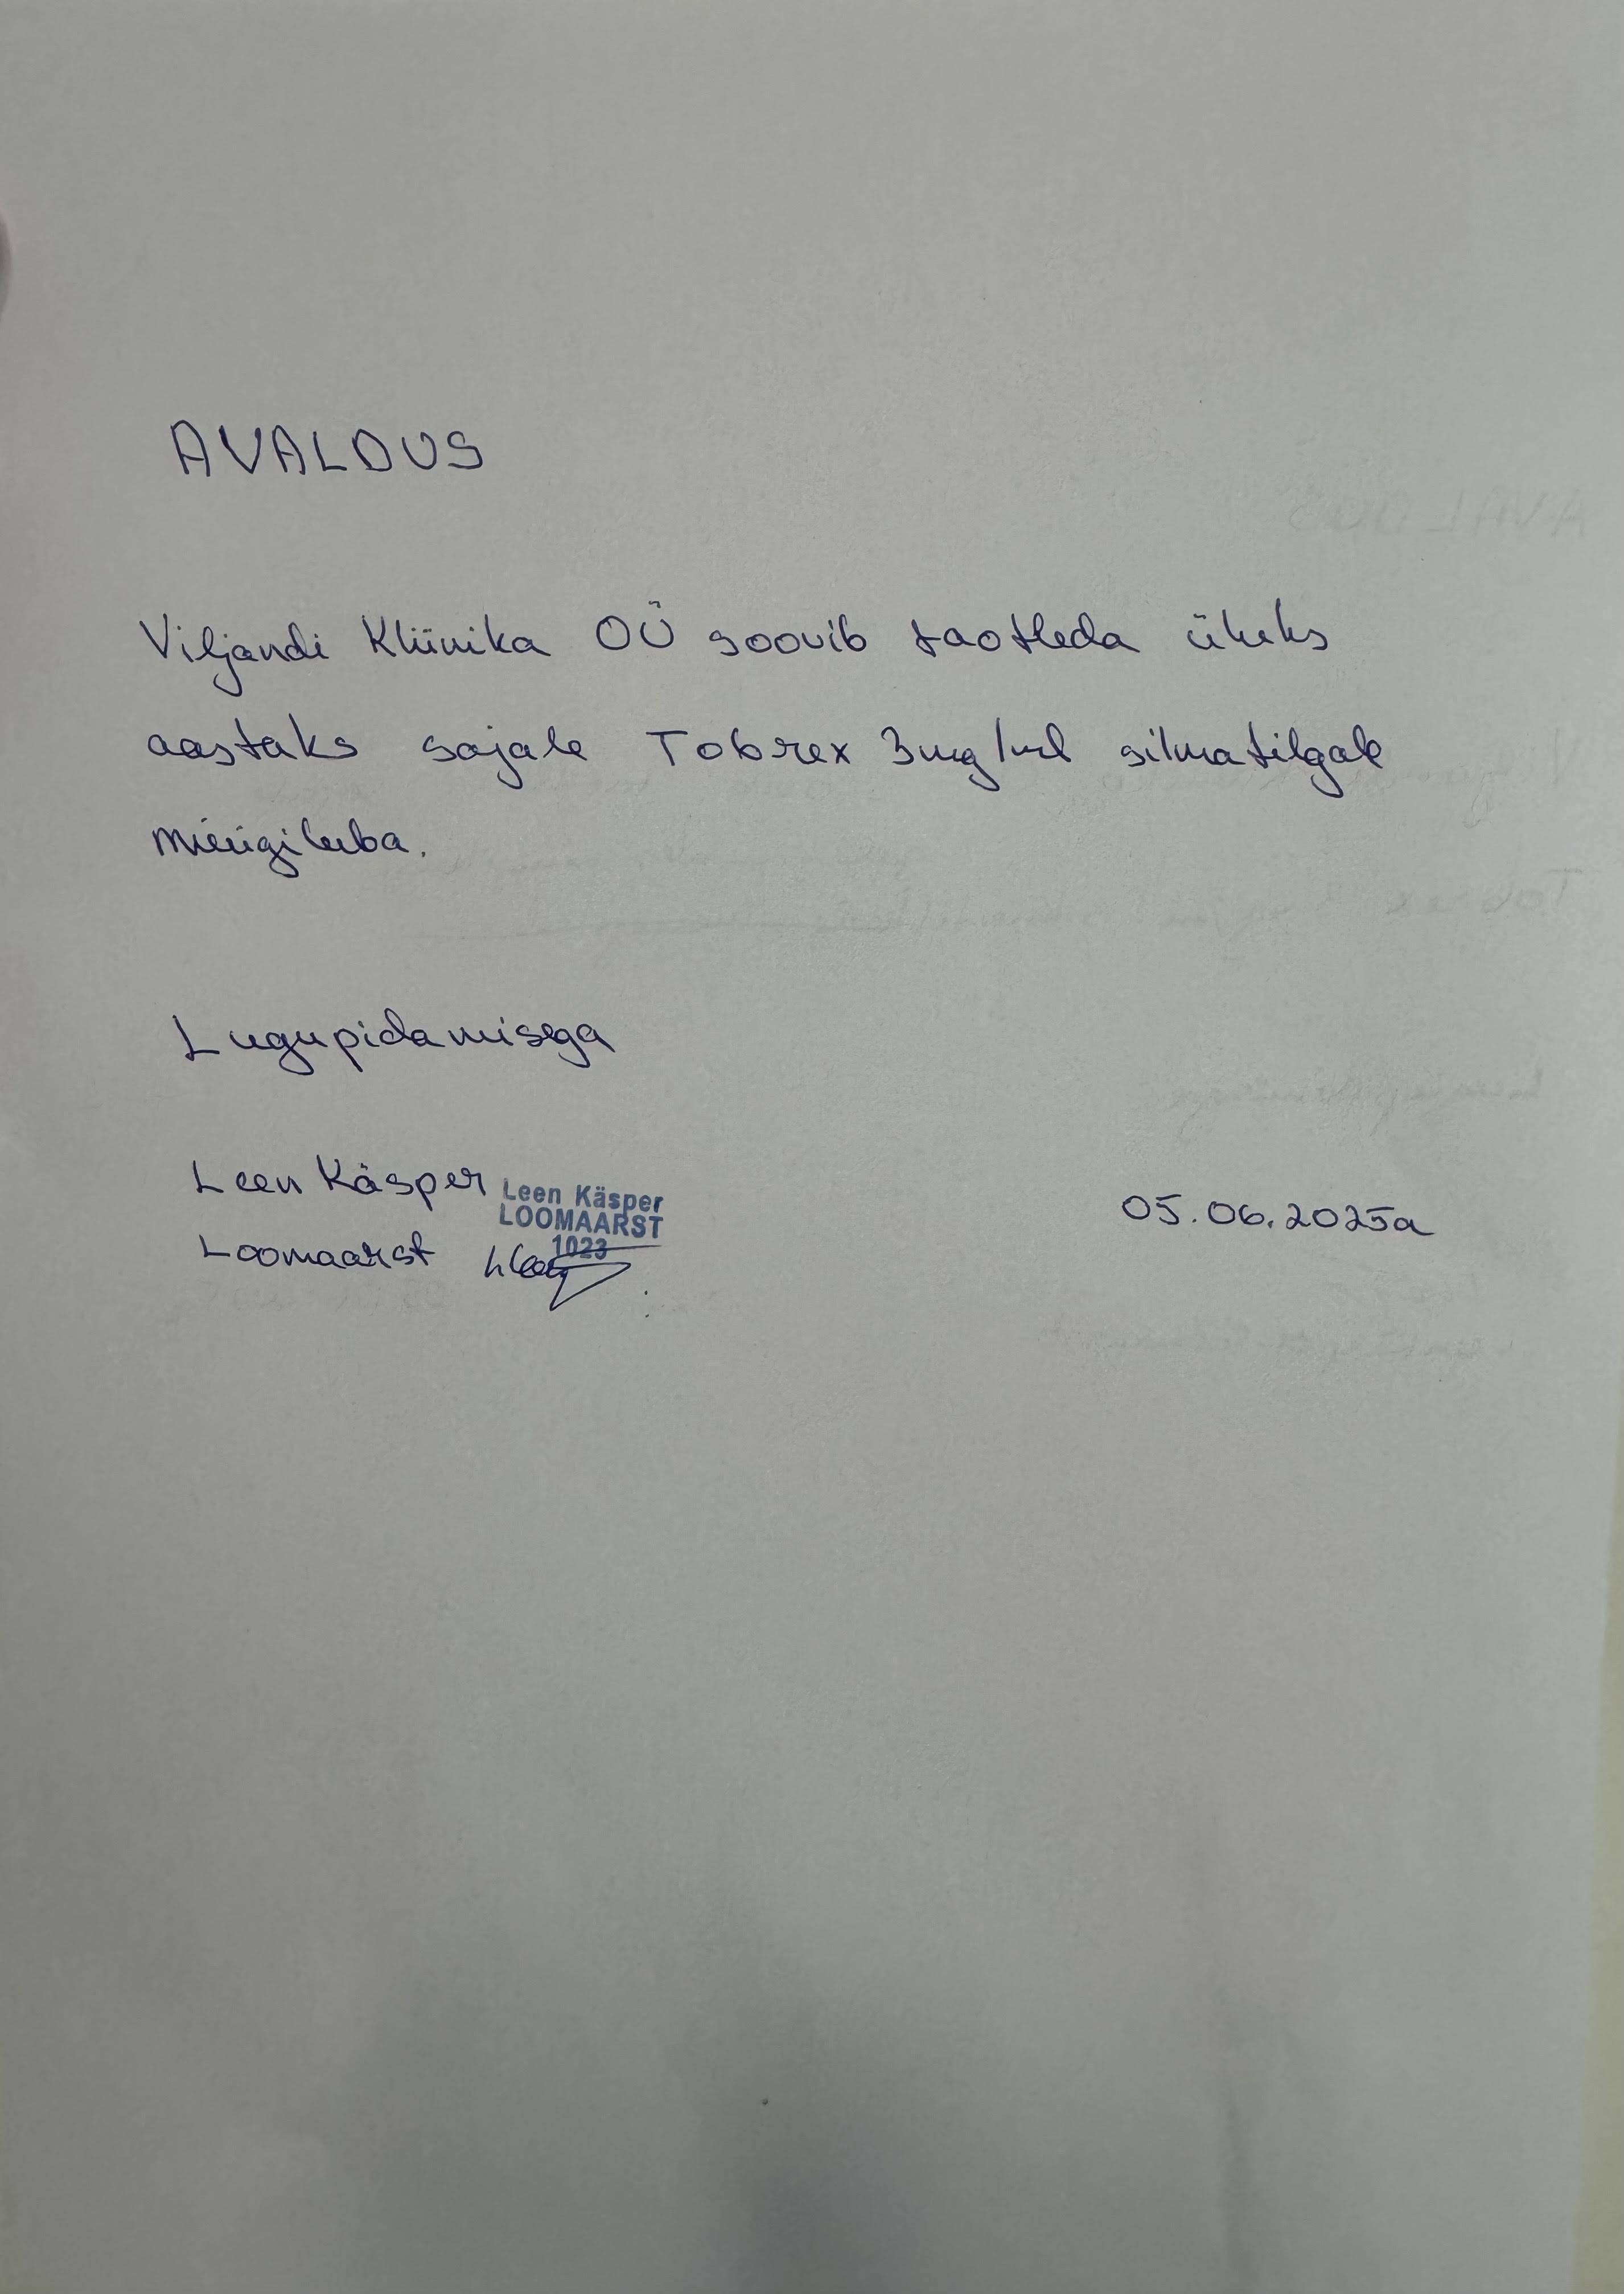 AVALDUS
Viljandi Kliinika OÜ soovib taotleda üheks
aastaks sajale Tobrex 3mg/ml silmatilgale
müügiluba.
Lugupidamisega
Leen Käsper
Leen Käsper
LOOMAARST
1023
Loomaarst
05.06.2025a